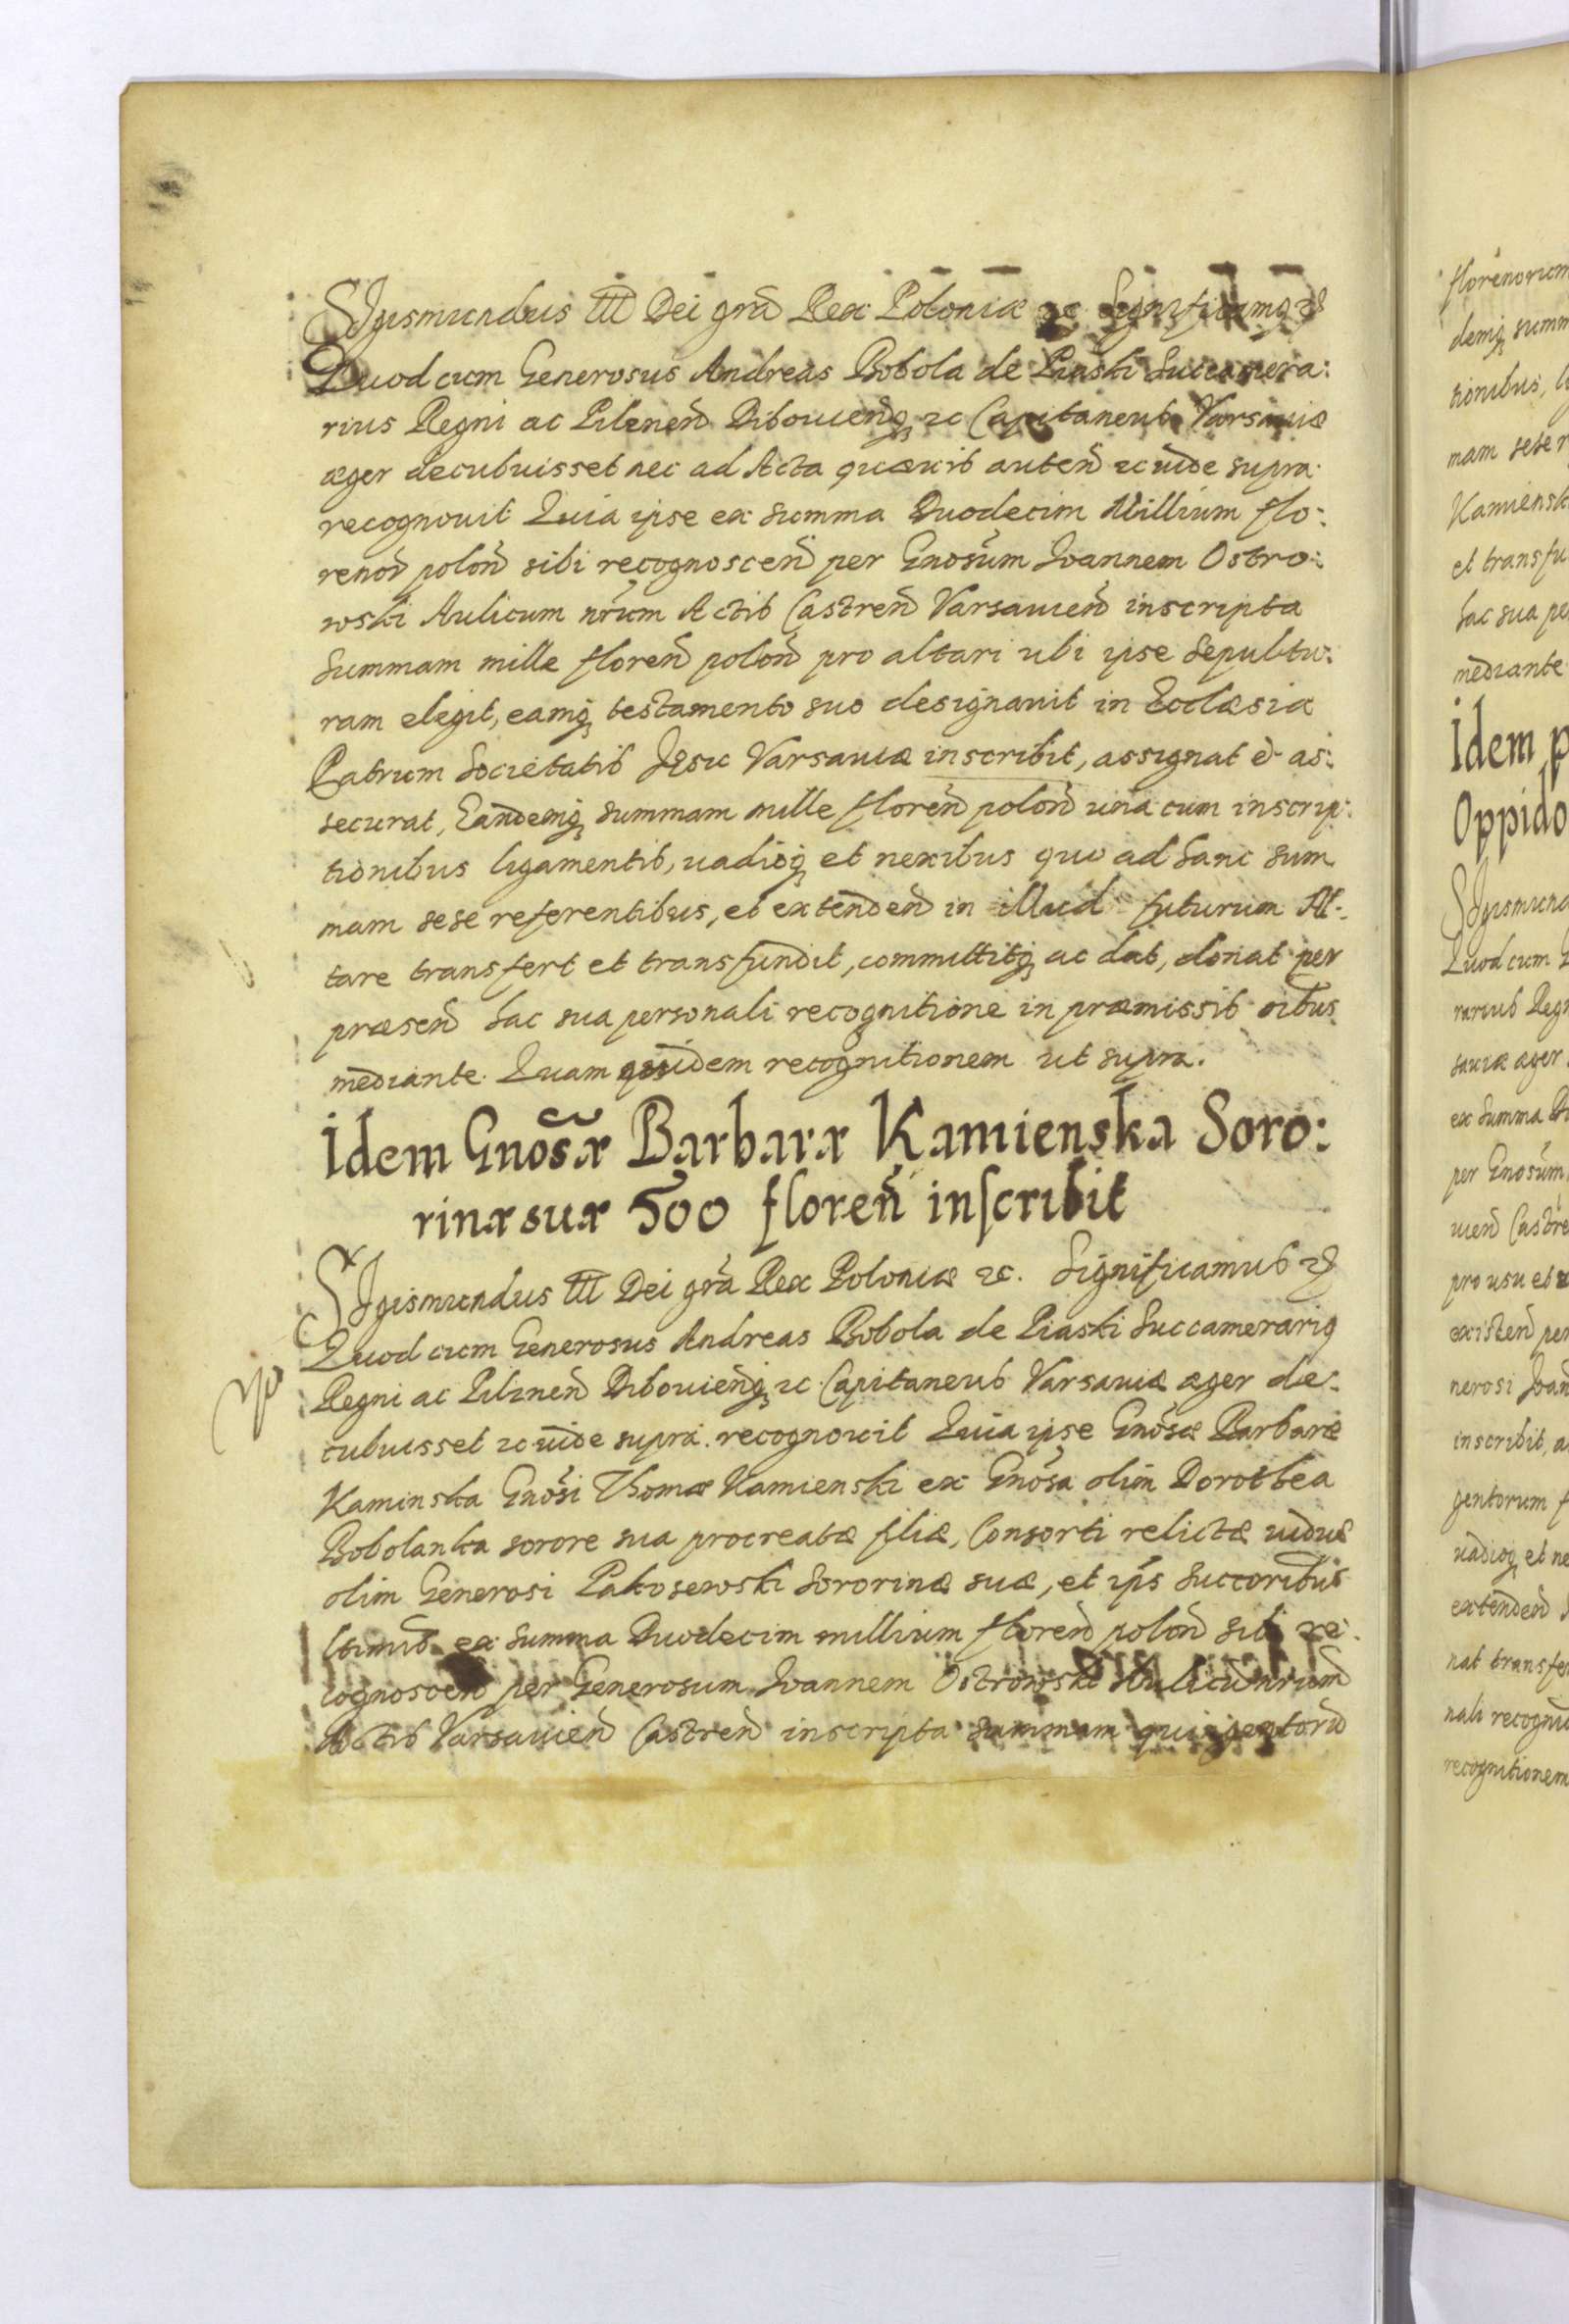 Sigismundus III Dei grã Rex Poloniæ ac Significamq ꝛc
Quod cum Generosus Andreas Bobola de Piaski Succamera:
rius Regni ac Pilznen̄ Dibouienq̨ ꝛc Capitaneus Varsauiæ
æger decubuisset nec ad Acta quæuis auten̄ ꝛc uide supra
recognouit Quia ipse ex summa Duodecim Millium flo:
renor̄ polon̄ sibi recognoscen̄ per Gnosum Joannem Ostro:
wski Aulicum nrũm Actis Castren̄ Varsauien̄ inscripta
Summam mille floren̄ polon̄ pro altari ubi ipse Sepultu:
ram elegit, eamq̨ testamento suo designauit in Ecclæsia
Patrum Societatis Jesu Varsauiæ inscribit, assignat & as:
securat, Eandemq̨ summam mille floren̄ polon̄ una cum inscrip:
tionibus ligamentis, uadijsq̨ et nexibus quo ad hanc sum
mam sese referentibus, et extenden̄ in illud futurum Al:
tare transfert et transfundit, committitq̨ ac dat, donat per
præsen̄ hac sua personali recognitione in præmissis oībus
mediante. Quam quidem recognitionem ut supra.
Idem Gnosæ Barbaræ Kamienska Soro:
rinæ suæ 500 floren̄ inscribit
Sigismundus III Dei grã Rex Poloniæ ꝛc. Significamus ꝛc
Quod cum Generosus Andreas Bobola de Piaski Succamerariq
Regni ac Pilznen̄ Dibouienq̨ ꝛc Capitaneus Varsauiæ æger de:
cubuisset ꝛc uide supra. recognouit Quia ipse Gnosæ Barbaræ
Kaminska Gnosi Thomæ Kamienski ex Gnosa olim Dorothea
Bobolanka sorore sua procreatæ filiæ, Consorti relictæ uiduæ
olim Generosi Pakosewski Sororinæ suæ, et ips̄ Succoribus
ltimis ex summa Duodecim millium floren̄ polon̄ sibi re:
cognoscen̄ per Generosum Joannem Ostrowski Aulicum nrum
Actis Varsauien̄ Castren̄ inscripta summam quingentor̄
florenorum
demq̨ summ
tionibus, l
mam sese r
Kamiensk
et transfu
hac sua pe
mediante
Idem p
Oppido
Sigismund
Quod cum G
rarius Regn
sauiæ æger
ex summa D
per Gnosum
uien̄ Castre
pro usu et
existen̄ per
nerosi Joan
inscribit, a
gentorum f
uadijsq̨ et ne
extenden̄
nat transfe
nali recogni
recognitionem